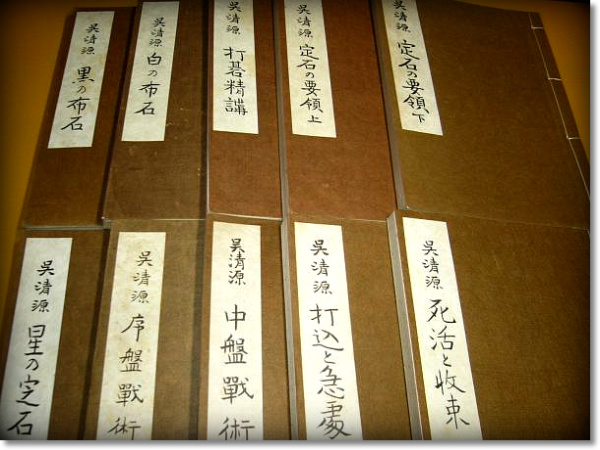 呉清源 黒の布石
呉清源 白の布石
呉清源 打碁精講
呉清源 定石の要領 上
呉清源 定石の要領 下
呉清源 星の定石
呉清源 序盤戰術
呉清源 中盤戰術
呉清源 打込と急處
呉清源 死活と收束